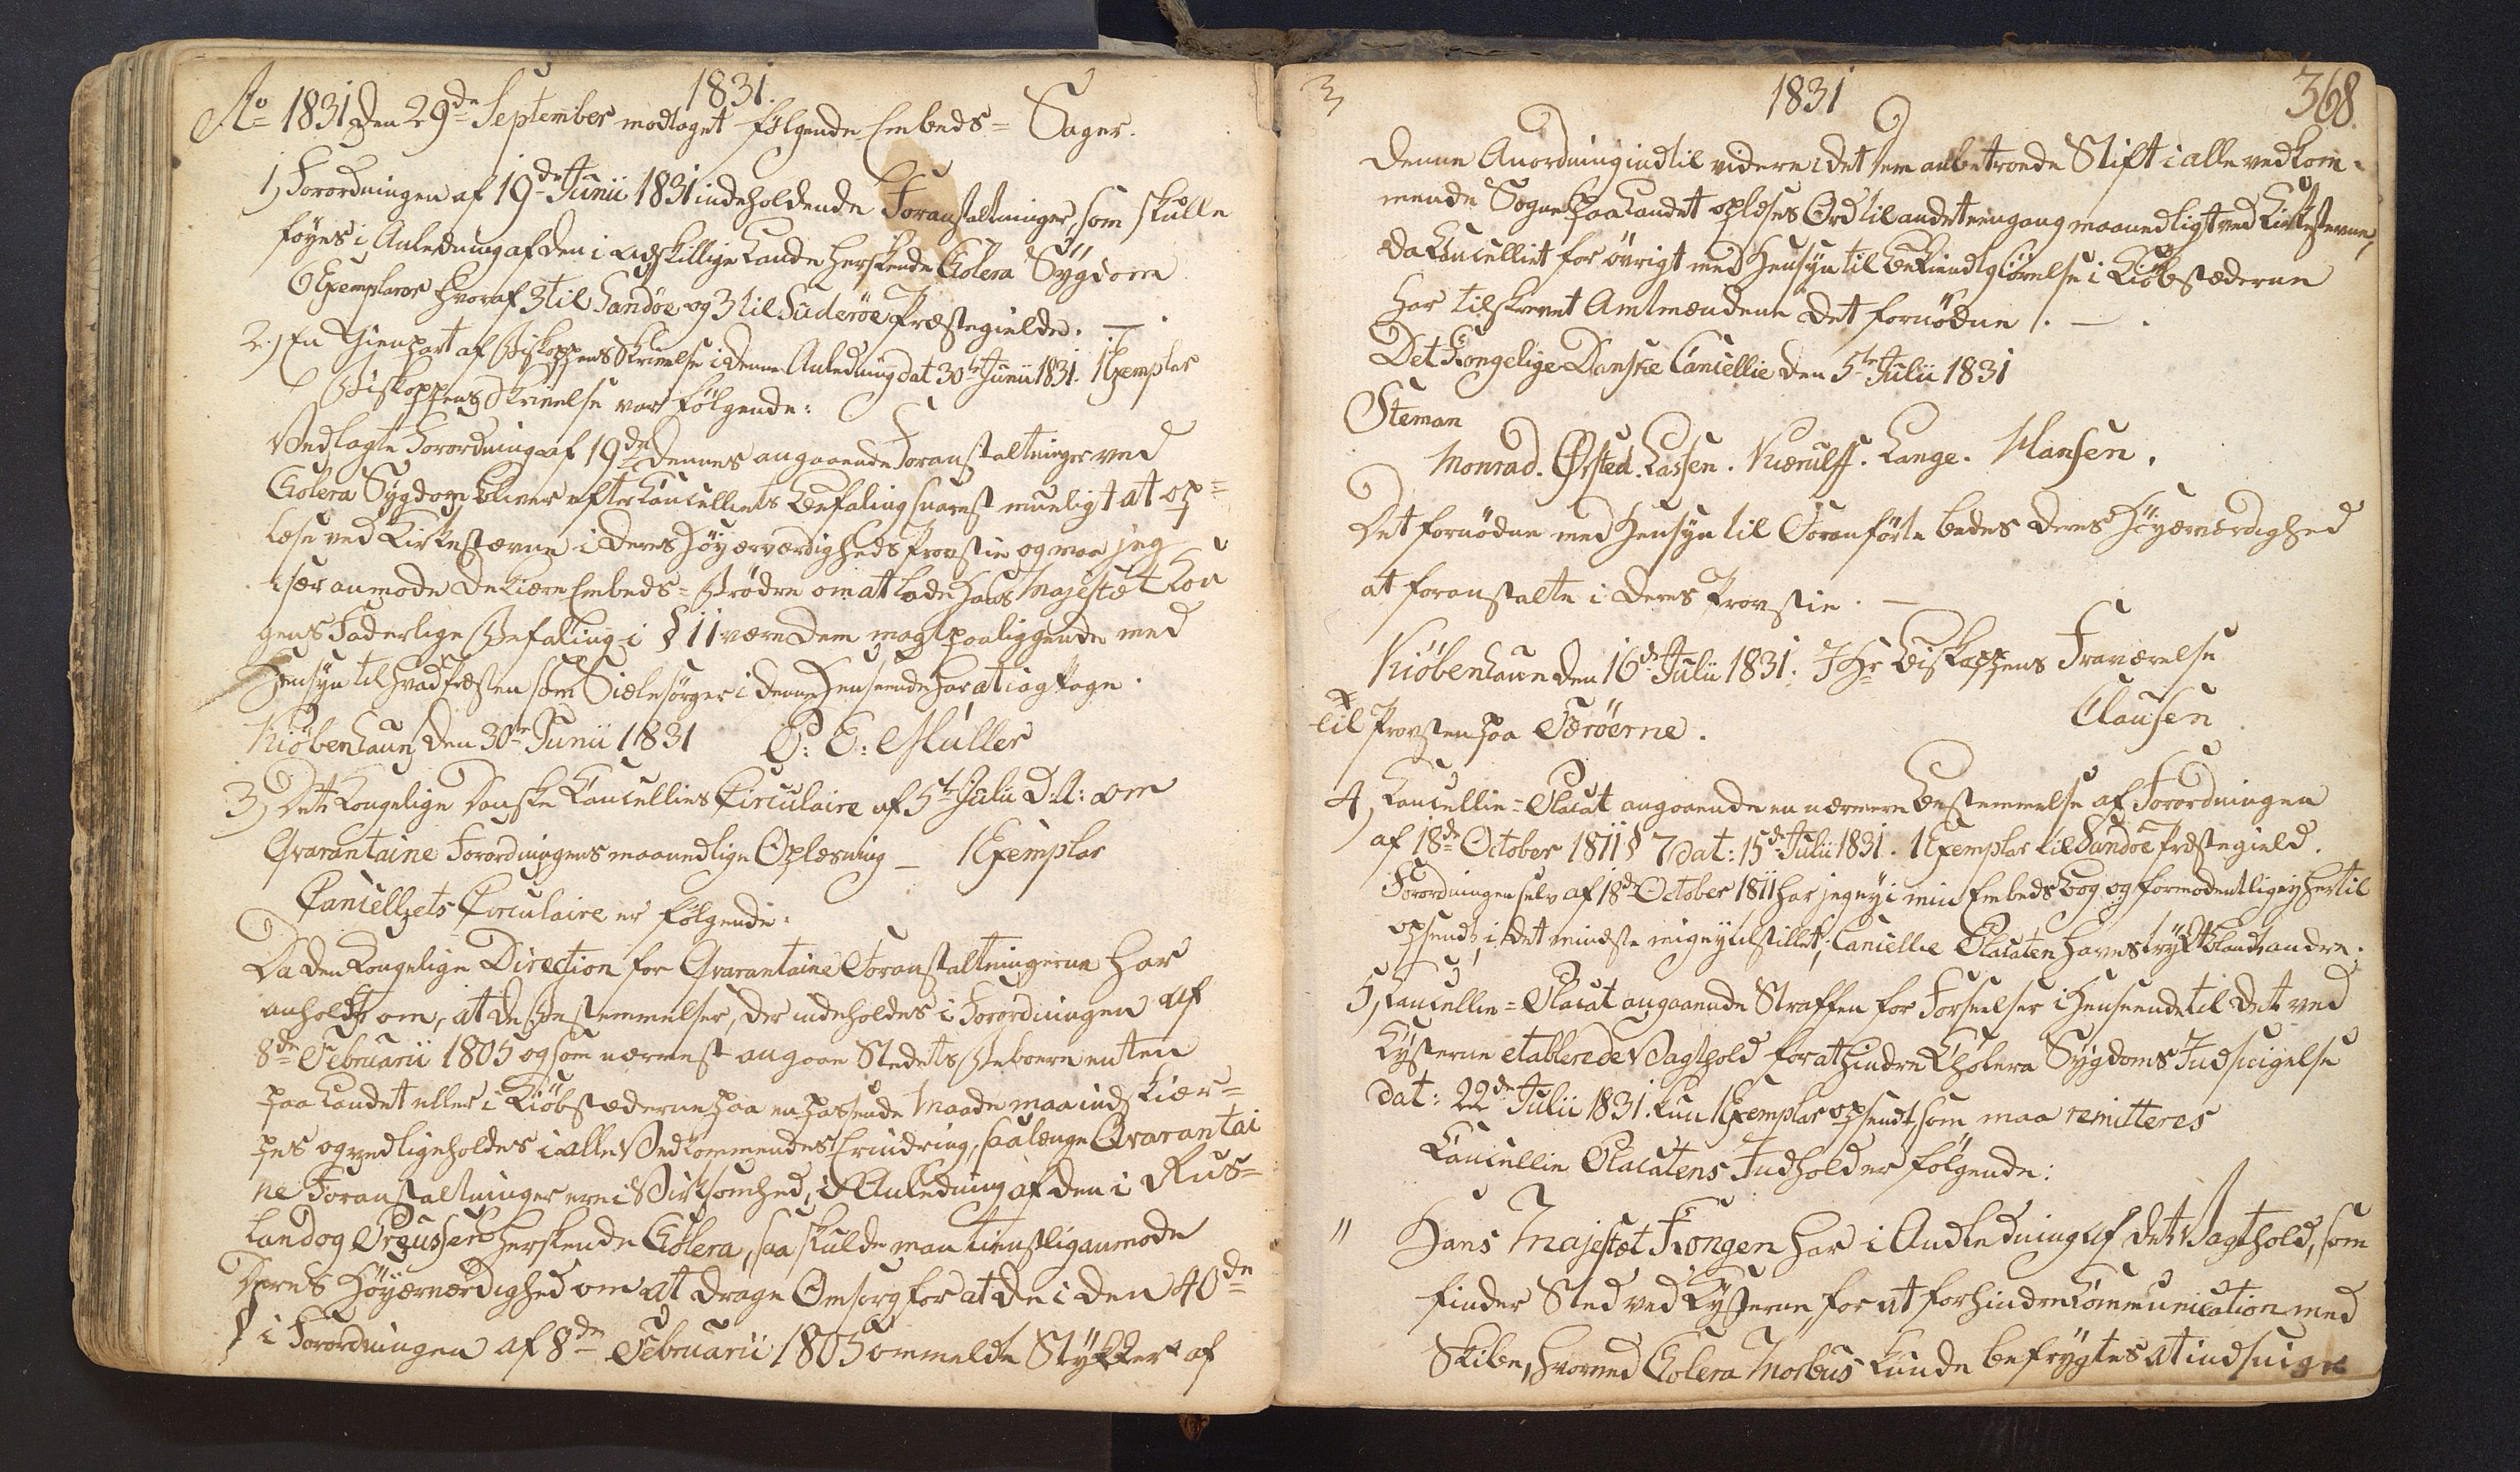 1831.
Ao 1831 den 29de September modtaget følgende Embeds= Sager.
1, Forordningen af 19de Junii 1831 indeholdende Foranstaltninger, som skulle
føyes i Anledning af den i adskillige Lande herskende Cholera Sÿgdom
6 Exemplarer hvoraf 3 til Sandöe og 3 til Suderöe Præstegield. —
2.) En Gienpart af Biskoppens Skrivelse i denne Anledning dat 30te Junii 1831. 1 Exemplar
Biskoppens Skrivelse var følgende:
Vedlagte Forordning af 19de dennes angaaende Foranstaltninger ved
Cholera Sÿgdom bliver efter Cancelliets Befaling snarest mueligt at op=
læse ved Kirkestævne i Deres Höÿærværdigheds Provstie og maa jeg
især anmode de kiære Embeds= Brödre om at lade Hans Majestæt Kon
gens Faderlige Befaling i § 11 være Dem magtpaaliggende med
Hensyn til hvad Præsten som Sielesörger i denne Henseende har at iagttage.
Kiöbenhavn den 30te Junii 1831 P: E: Müller
3) Det Kongelige Danske Cancellies Circulaire af 5te Julii D.A: om
Qvarantaine Forordningens maanedlige Oplæsning — 1 Exemplar
Cancelliets Circulaire er følgende:
Da den Kongelige Direction for Qvarantaine Foranstaltningerne har
anholdt om, at de Bestemmelser, der indeholdes i Forordningen af
8de Februarii 1805 og som nærmest angaae Stedets Beboere enten
paa Landet eller i Kiöbstæderne paa en passende Maade maa indskiær=
pes og vedligeholdes i alle Vedkommendes Erindring, saalænge Qvarantai
ne Foranstaltninger ere i Virksomhed, i Anledning af den i Rus=
land og Preussen herskende Cholera, saa skulde man tienstligst anmode
Deres Höÿærværdighed om at drage Omsorg for at de i den 40de
§ i Forordningen af 8de Februarii 1805 ommeldte Stÿkker af
3,
1831
368.
denne Anordning indtil videre i det Dem anbetroede Stift i alle vedkom=
mende Sogne paa Landet oplæses Ord til andet eengang maanedligt ved Kirkestævne,
da Cancelliet for övrigt med Hensyn til Bekiendtgiörelse i Kiöbstæderne
har tilskrevet Amtmændene det fornödne. —
Det Kongelige Danske Cancellie den 5te Julii 1831
Steman
Monrad. Ørsted. Lassen. Kierulff. Lange. Hansen.
Det fornödne med Hensyn til Foranförte bedes Deres Höÿærværdighed
at foranstalte i Deres Provstie. —
Kiöbenhavn den 16de Julii 1831. I Hr Biskoppens Fraværelse
Clausen
til Provsten paa Færöerne.
4, Cancellie= Placat angaaende en nærmere Bestemmelse af Forordningen
af 18de October 1811 § 7 dat: 15de Julii 1831. 1 Exemplar til Sandöe Præstegield.
Forordningen selv af 18de October 1811 har jeg eÿ i min Embeds Bog og formodentlig eÿ hertil
opsendt, i det mindste mig eÿ tilstillet; Cancellie Placaten haves trÿkt blandt andre.
5, Cancellie= Placat angaaende Straffen for Forseelser i Henseende til det ved
Kÿsterne etablerede Vagthold for at hindre Cholera Sÿgdoms Indsnigelse
dat: 22de Julii 1831. kun 1 Exemplar opsendt som maa remitteres
Cancellie Placatens Indhold er følgende:
" Hans Majestæt Kongen har i Andledning af det Vagthold, som
finder Sted ved Kÿsterne, for at forhindre Communication med
Skibe, hvorved Cholera Morbus kunde befrÿgtes at indsnige